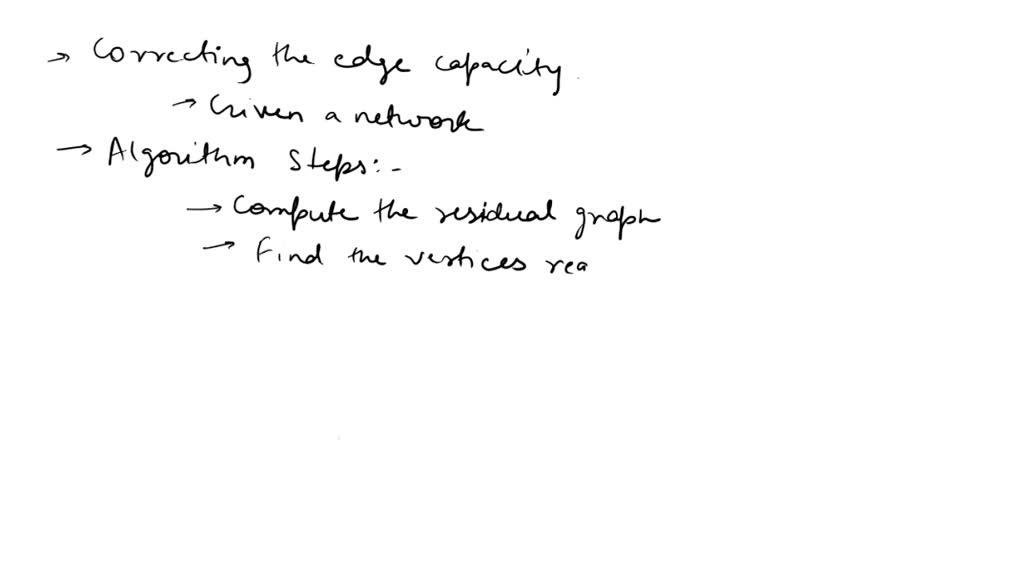 → Correcting the edge capacity.
→ Given a network
→ Algorithm Steps:-
→ Compute the residual graph
→ Find the vertices rea